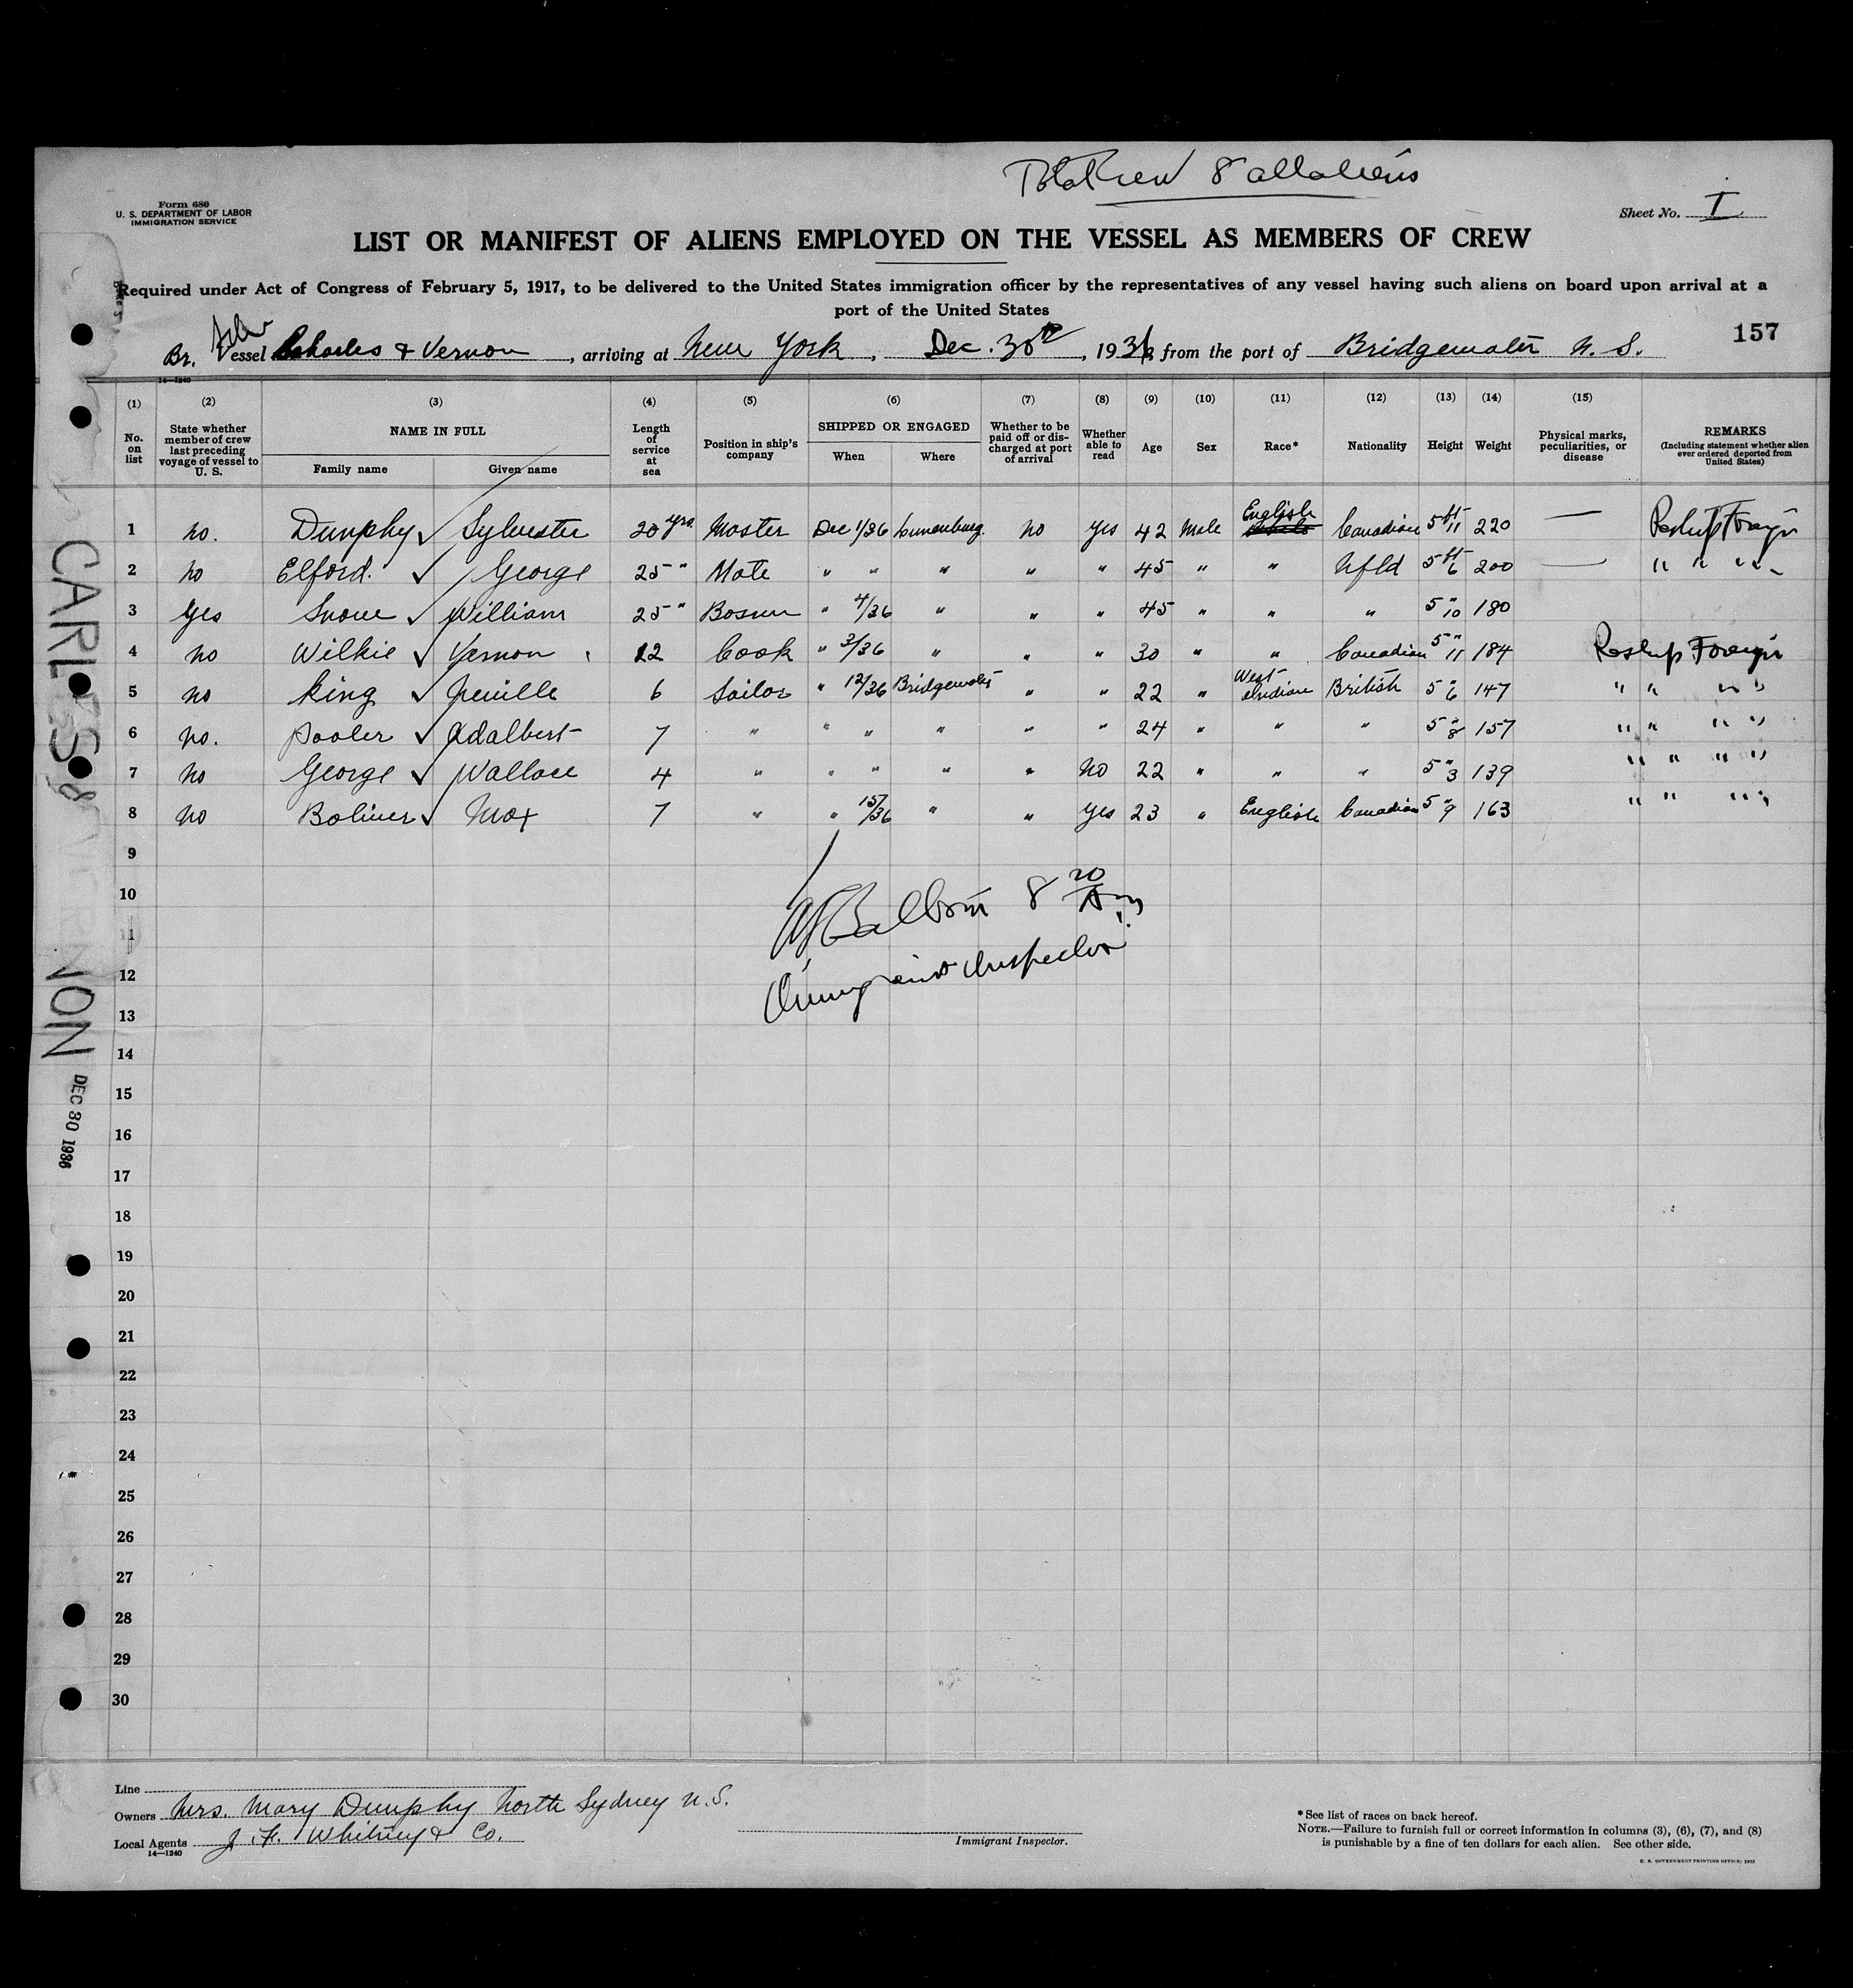 Total Crew 8 all aliens
Form 680
U. S. DEPARTMENT OF LABOR
IMMIGRATION SERVICE
Sheet No. I
LIST OR MANIFEST OF ALIENS EMPLOYED ON THE VESSEL AS MEMBERS OF CREW
Required under Act of Congress of February 5, 1917, to be delivered to the United States immigration officer by the representatives of any vessel having such aliens on board upon arrival at a
port of the United States
157
Br. Vessel Charles & Vernon, arriving at New York, Dec. 30th, 1936, from the port of Bridgewater N. S.
14—1240
(1) (2) (3) (4) (5) (6) (7) (8) (9) (10) (11) (12) (13) (14) (15)
No. on list
State whether member of crew last preceding voyage of vessel to U. S.
NAME IN FULL
Family name
Given name
Length of service at sea
Position in ship's company
SHIPPED OR ENGAGED
When
Where
Whether to be paid off or discharged at port of arrival
Whether able to read
Age
Sex
Race*
Nationality
Height
Weight
Physical marks, peculiarities, or disease
REMARKS
(Including statement whether alien ever ordered deported from United States)
1 no. Dunphy ✓ Sylvester 20 yrs. Master Dec 1/36 Lunenburg. no yes 42 Male English Canadian 5 ft 11 220 — Reship Foreign
2 no Elford. ✓ George 25 " Mate " " " " " 45 " " Nfld 5 ft 6 200 — " " " "
3 Yes Snow ✓ William 25 " Bosun " 4/36 " " " 45 " " " 5 " 10 180
4 no Wilkie ✓ Vernon 12 Cook " 3/36 " " " 30 " " Canadian 5 " 11 184 Reship Foreign
5 no King ✓ Neville 6 Sailor " 12/36 Bridgewater " " 22 " West Indian British 5 " 6 147 " " " "
6 no. Pooler ✓ Adalbert 7 " " " " " " 24 " " " 5 " 8 157 " " " "
7 no George ✓ Wallace 4 " " " " " No 22 " " " 5 " 3 139 " " " "
8 no Boliver ✓ Max 7 " " 15/36 " " Yes 23 " English Canadian 5 " 9 163 " " " "
9
10
11
12
13
14
15
16
17
18
19
20
21
22
23
24
25
26
27
28
29
30
8 20 Am
Immigrant Inspector
DEC 30 1936
Line
Owners Mrs. Mary Dunphy North Sydney N.S.
Local Agents J. F. Whitney & Co.
14—1240
Immigrant Inspector.
*See list of races on back hereof.
NOTE.—Failure to furnish full or correct information in columns (3), (6), (7), and (8)
is punishable by a fine of ten dollars for each alien. See other side.